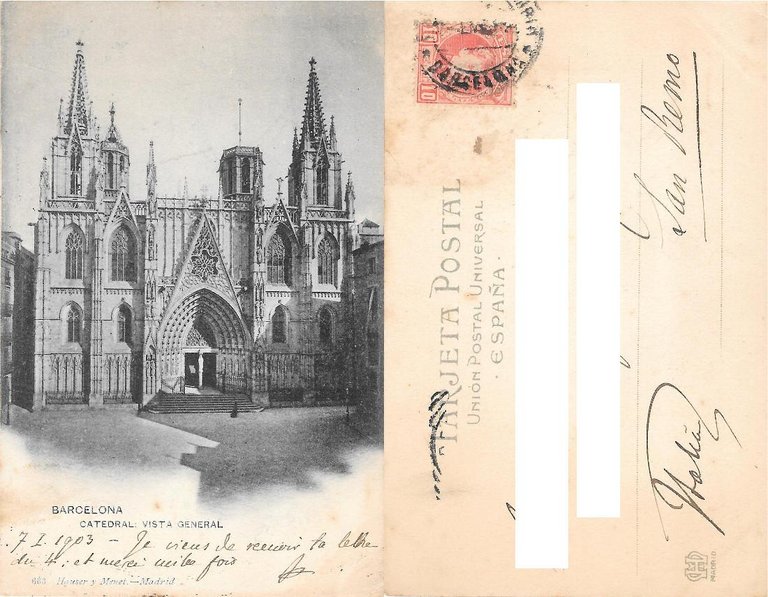 BARCELONA
CATEDRAL: VISTA GENERAL
7 I. 1903 - Je viens de recevoir ta lettre
du 4; et merci mille fois
663 Hauser y Menet.-Madrid
10 10
BARCELONA
TARJETA POSTAL
UNIÓN POSTAL UNIVERSAL
· ESPAÑA ·
San Remo
Italia
MADRID